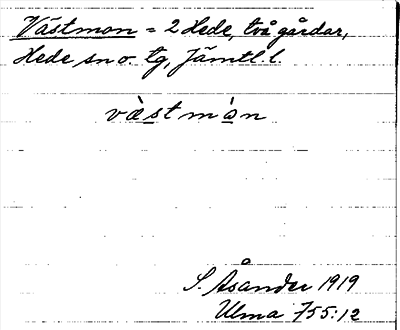 Västmon = 2 Hede, två gårdar,
Hede sn o. tg, Jämtl. l.
vὰstmὰn
S. Åsander 1919
Ulma 755:12